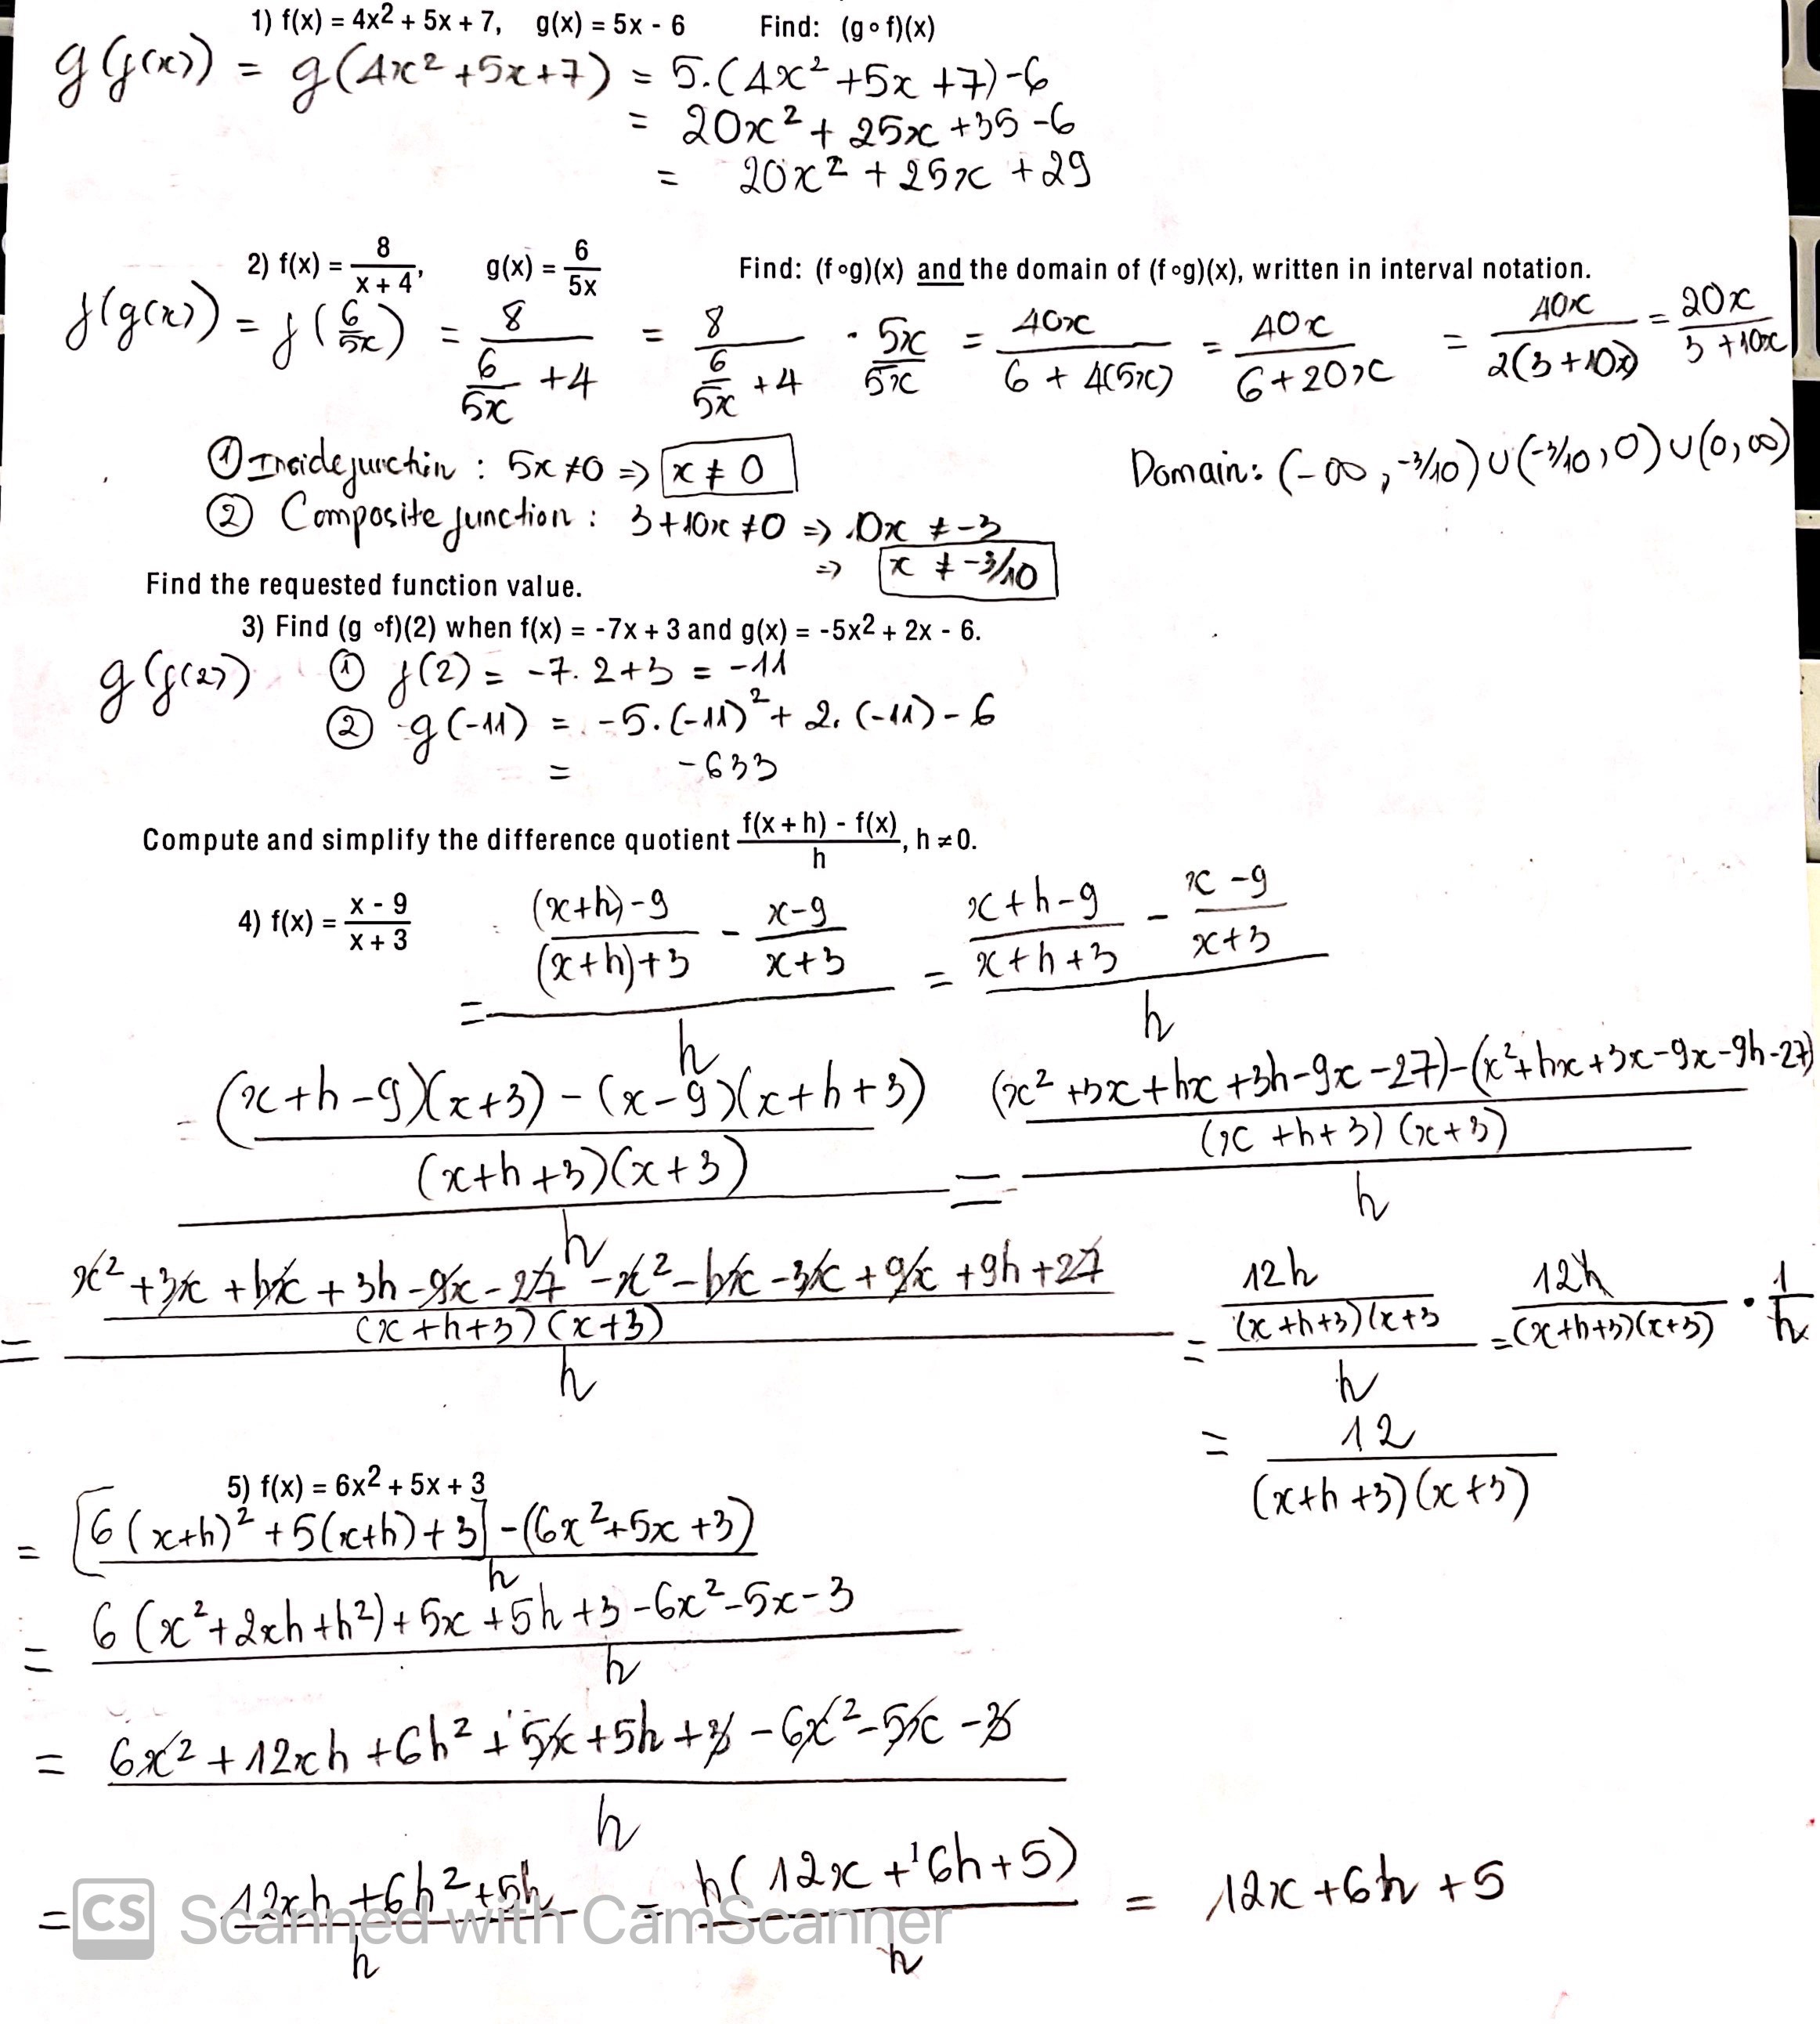 1) f(x) = 4x2 + 5x + 7, g(x) = 5x - 6 Find: (g∘f)(x)
g(f(x)) = g(4x² + 5x + 7) = 5.(4x² + 5x + 7) - 6
= 20x² + 25x + 35 - 6
= 20x² + 25x + 29
2) f(x) = 8/(x + 4), g(x) = 6/(5x) Find: (f∘g)(x) and the domain of (f∘g)(x), written in interval notation.
f(g(x)) = f(6/5x) = 8/(6/5x + 4) = 8/(6/5x + 4) · 5x/5x = 40x/(6 + 4(5x)) = 40x/(6 + 20x) = 40x/(2(3 + 10x)) = 20x/(3 + 10x)
① Inside function : 5x ≠ 0 => x ≠ 0
Domain: (-∞, -3/10) ∪ (-3/10, 0) ∪ (0, ∞)
② Composite function : 3 + 10x ≠ 0 => 10x ≠ -3
=> x ≠ -3/10
Find the requested function value.
3) Find (g ∘f)(2) when f(x) = -7x + 3 and g(x) = -5x2 + 2x - 6.
g(f(2)) ① f(2) = -7. 2 + 3 = -11
② g(-11) = -5.(-11)² + 2.(-11) - 6
= -633
Compute and simplify the difference quotient (f(x + h) - f(x))/h, h ≠ 0.
4) f(x) = (x - 9)/(x + 3)
= (((x+h)-9)/((x+h)+3) - (x-9)/(x+3))/h = ((x+h-9)/(x+h+3) - (x-9)/(x+3))/h
= (((x+h-9)(x+3) - (x-9)(x+h+3))/((x+h+3)(x+3)))/h = (((x²+3x+hx+3h-9x-27)-(x²+hx+3x-9x-9h-27))/((x+h+3)(x+3)))/h
= ((x²+3x+hx+3h-9x-27-x²-hx-3x+9x+9h+27)/((x+h+3)(x+3)))/h = (12h/((x+h+3)(x+3))/h = 12h/((x+h+3)(x+3)) · 1/h
= 12/((x+h+3)(x+3))
5) f(x) = 6x2 + 5x + 3
= ([6(x+h)² + 5(x+h) + 3] - (6x²+5x+3))/h
= (6(x²+2xh+h²)+5x+5h+3-6x²-5x-3)/h
= (6x²+12xh+6h²+5x+5h+3-6x²-5x-3)/h
= (12xh+6h²+5h)/h = h(12x+6h+5)/h = 12x+6h+5
CS Scanned with CamScanner